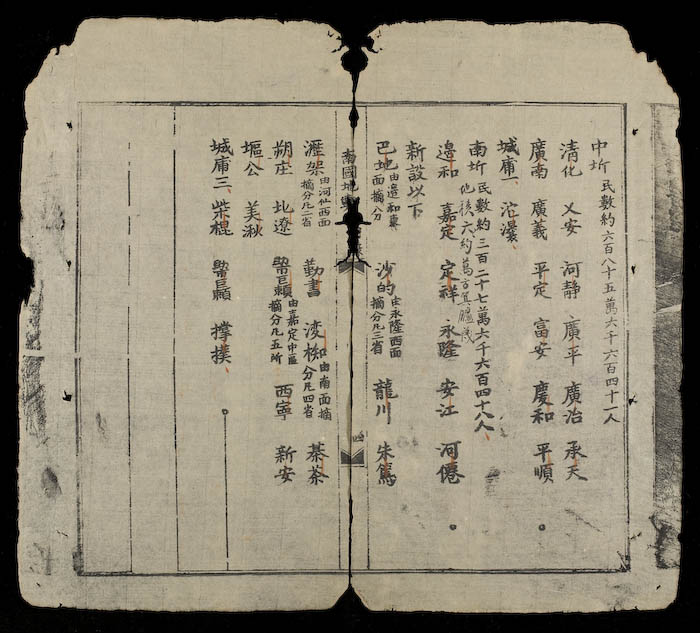 中圻 民數約六百八十五萬六千六百四十一人
清化 乂安 河靜 廣平 廣治 承天
廣南 廣義 平定 富安 慶和 平順
城庫一、沱灢、
南圻 民數約三百二十七萬六千六百四十八人、
邊和 嘉定 定祥 永隆 安江 河僊
新設以下
巴地 由邊和東面摘八分 沙的 由永隆西面摘分凡三省 龍川 朱篤
南國地輿 四
瀝架 由河仙西面摘分凡二省 勤書 淩椥 由南面摘分凡四省 茶
朔庄 北遼 由嘉定中區摘分凡五所 西寧 新安
塸公 美湫
城庫三、柴棍 撑撲、